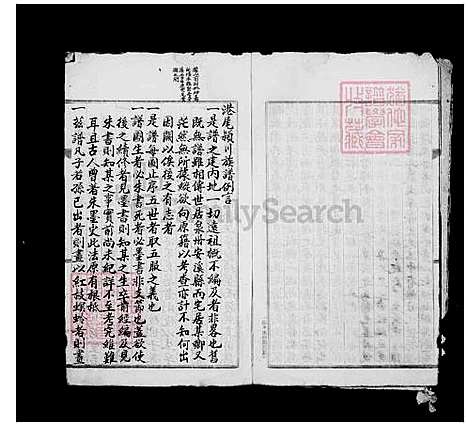 港尾潁川族譜例言
一是譜之建內地一切遠祖概不編及者非畧也舊
既無譜雖相傳世居泉州安溪縣而宅居某鄉又
茫然無所據縱欲向原籍以考查亦計不知何出
因闕以俟後之有志者
一是譜每圖止序五世者取五服之義也
一譜圖生者必朱書死者必墨書非文節也蓋欲使
後之續修者見墨書則知其之生亡前經編及見
朱書則知其之事實前尚未紀詳不至考究維難
耳且古人曾著朱墨史此法原有根柢
一玆譜凡子若孫已出者則畫以紅枝螟蛉者則畫
FamilySearch